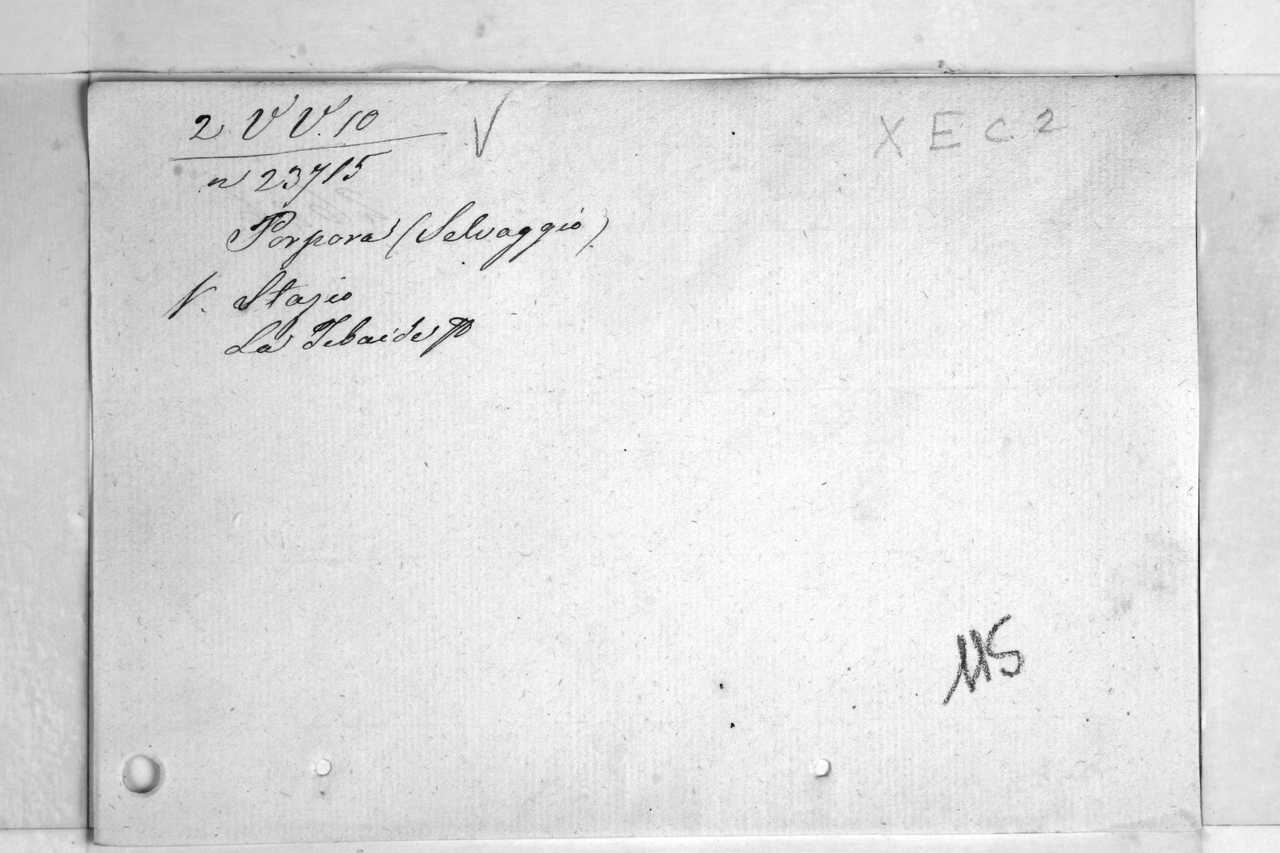 2 V V. 10 V
X E C 2
n 23715
Porpora (Selvaggio)
V. Stazio
La Tebaide
115